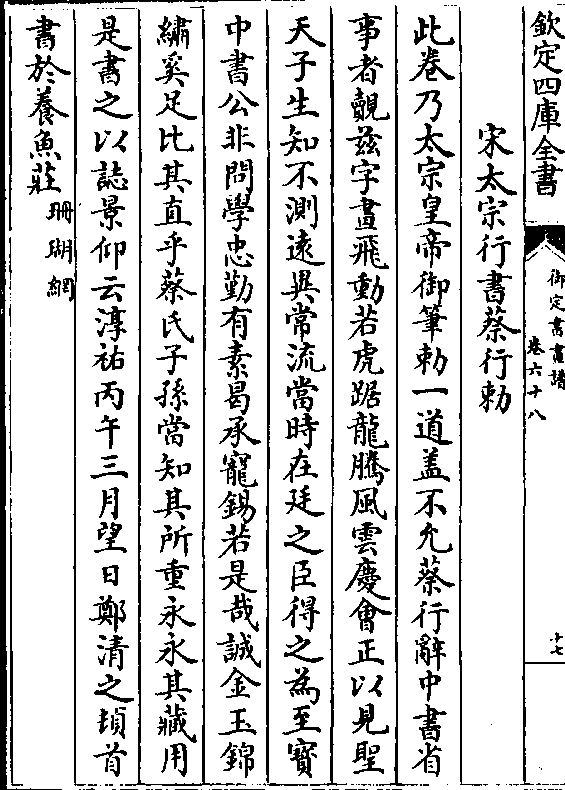 欽定四庫全書
御定書畫譜
卷六十八
十七
宋太宗行書蔡行勅
此卷乃太宗皇帝御筆勅一道盖不允蔡行辭中書省
事者覩茲字畫飛動若虎踞龍騰風雲慶會正以見聖
天子生知不測遠異常流當時在廷之臣得之為至寳
中書公非問學忠勤有素曷承寵錫若是哉誠金玉錦
繡奚足比其直乎蔡氏子孫當知其所重永永其藏用
是書之以誌景仰云淳祐丙午三月望日鄭清之頓首
書於養魚莊
珊瑚網